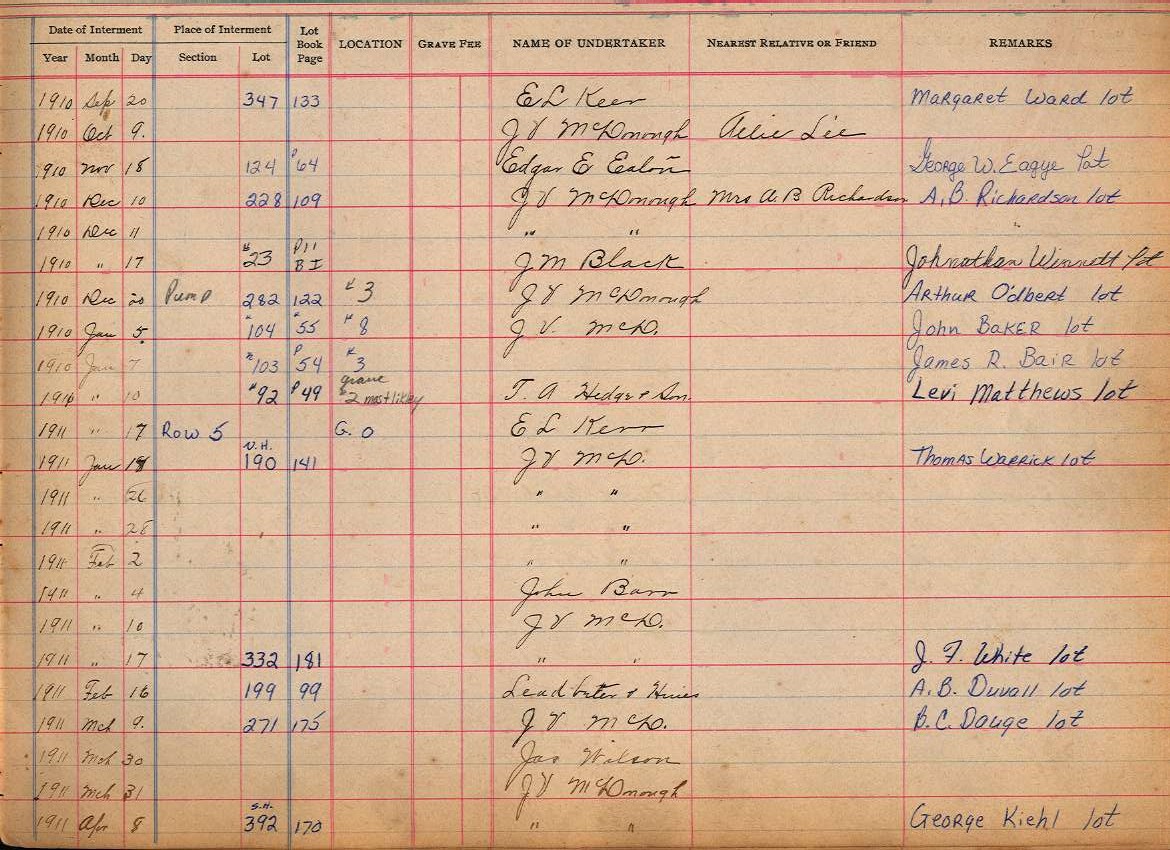 Date of Interment Place of Interment Lot Book Page LOCATION GRAVE FEE NAME OF UNDERTAKER NEAREST RELATIVE OR FRIEND REMARKS
Year Month Day Section Lot
1910 Sep 20 347 133 E L Kerr Margaret Ward lot
1910 Oct 9. J V McDonough Allie Lee
1910 Nov 18 124 P 64 Edgar E George W. Eagye lot
1910 Dec 10 228 109 J V McDonough Mrs A. B Richardson A. B. Richardson lot
1910 Dec 11 " "
1910 " 17 # 23 P 11 B I J M Black Johnathan Winnett lot
1910 Dec 20 Pump 282 122 # 3 J V McDonough Arthur O'dbert lot
1910 Jan 5. " 104 " 55 # 8 J V. McD. John Baker lot
1910 Jan 7 # 103 P 54 # 3 James R. Bair lot
1910 " 10 # 92 P 49 grave #2 most likely T. A Hedge & Son. Levi Matthews lot
1911 " 17 Row 5 G. O E L Kerr
1911 Jan 19 N.H. 190 141 J V McD. Thomas Warrick lot
1911 " 26 " "
1911 " 28 " "
1911 Feb 2 " "
1911 " 4 John Barr
1911 " 10 J V McD.
1911 " 17 332 181 " " J. F. White lot
1911 Feb 16 199 99 & Hines A. B. Duvall lot
1911 Mch 9. 271 175 J V McD. B. C. Dauge lot
1911 Mch 30 Jas Wilson
1911 Mch 31 J V McDonough
1911 Apr 8 S.H. 392 170 " " George Kiehl lot